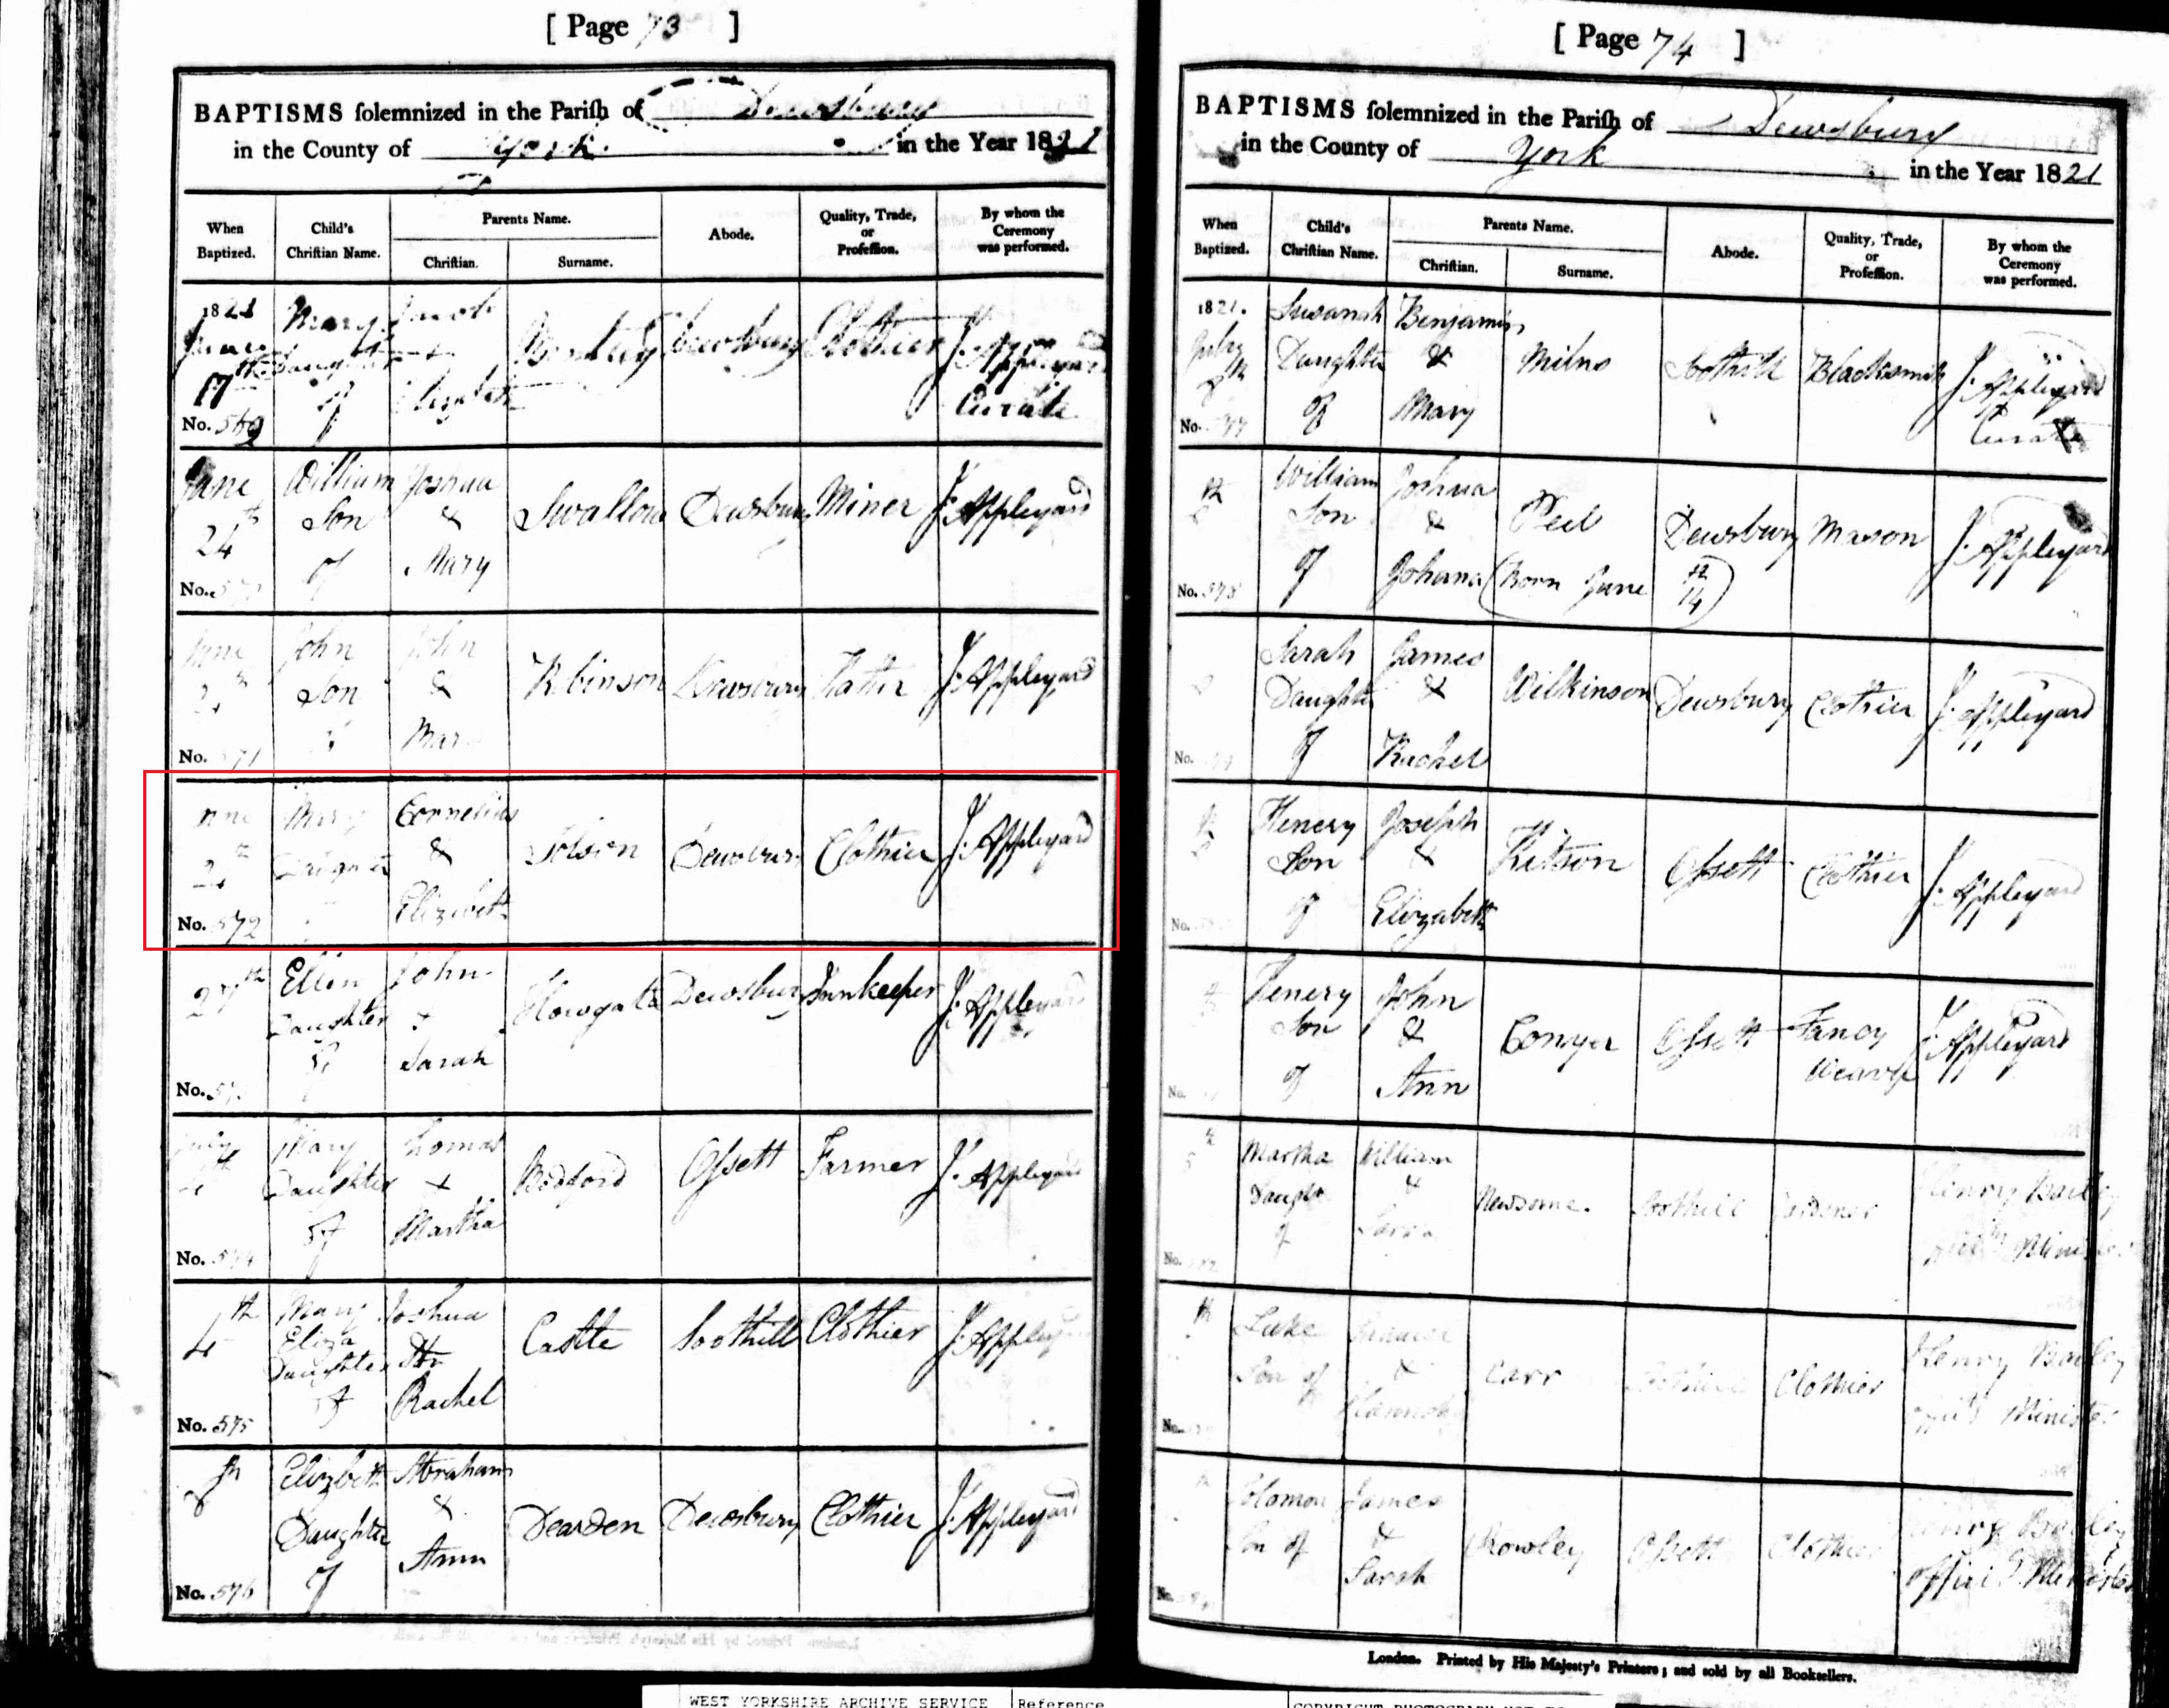 [ Page 73 ]
BAPTISMS solemnized in the Parish of Dewsbury
in the County of York. in the Year 1821
When Baptized.
Child's Christian Name.
Parents Name.
Christian.
Surname.
Abode.
Quality, Trade, or Profession.
By whom the Ceremony was performed.
1821 Mary Jacob
June Daughter & Dewsbury Clothier J. Appleyard
17th of Elizabeth Curate
No. 569
June William Joshua
24th Son & Swallow Dewsbury Miner J. Appleyard
of Mary
No.
June John John
Son & Robinson Dewsbury J. Appleyard
Mary
No. 571
Mary Cornelius
Daughter & Dewsbury Clothier J. Appleyard
Elizabeth
No. 572
27th Ellen John
Daughter & Howgate Dewsbury Innkeeper J. Appleyard
of Sarah
No.
July Mary Thomas
Daughter & Bedford Ossett Farmer J. Appleyard
of Martha
No. 574
4th Mary Joshua
Eliza
Daughter & Castle Soothill Clothier J. Appleyard
of Rachel
No. 575
8th Elizbeth Abraham
Daughter & Dearden Dewsbury Clothier J. Appleyard
of Ann
No. 576
[ Page 74 ]
BAPTISMS solemnized in the Parish of Dewsbury
in the County of York in the Year 1821
When Baptized.
Child's Christian Name.
Parents Name.
Christian.
Surname.
Abode.
Quality, Trade, or Profession.
By whom the Ceremony was performed.
1821. Susanah Benjamin
July Daughter & Milns Soothill Blacksmith J. Appleyard
of Mary Curate
No.
William Joshua
Son & Peel Dewsbury Mason J. Appleyard
of Johana (Born June 14th)
No. 578
Sarah James
Daughter & Wilkinson Dewsbury Clothier J. Appleyard
of Rachel
No.
Henery Joseph
Son & Kitson Ossett Clothier J. Appleyard
of Elizabeth
No.
Henery John
Son & Conyer Ossett Fancy J. Appleyard
of Ann Weaver
No.
Martha William
Daughtr & Newsome. Soothill Henry Bailey
of Sarah Minister
No.
Luke
Son of & Carr Clothier Henry Bailey
Hannah Minister
No.
Solomon James
Son of & Rowley Ossett Clothier Henry Bailey
Sarah Minister
No.
London. Printed by His Majesty's Printers; and sold by all Booksellers.
WEST YORKSHIRE ARCHIVE SERVICE
Reference